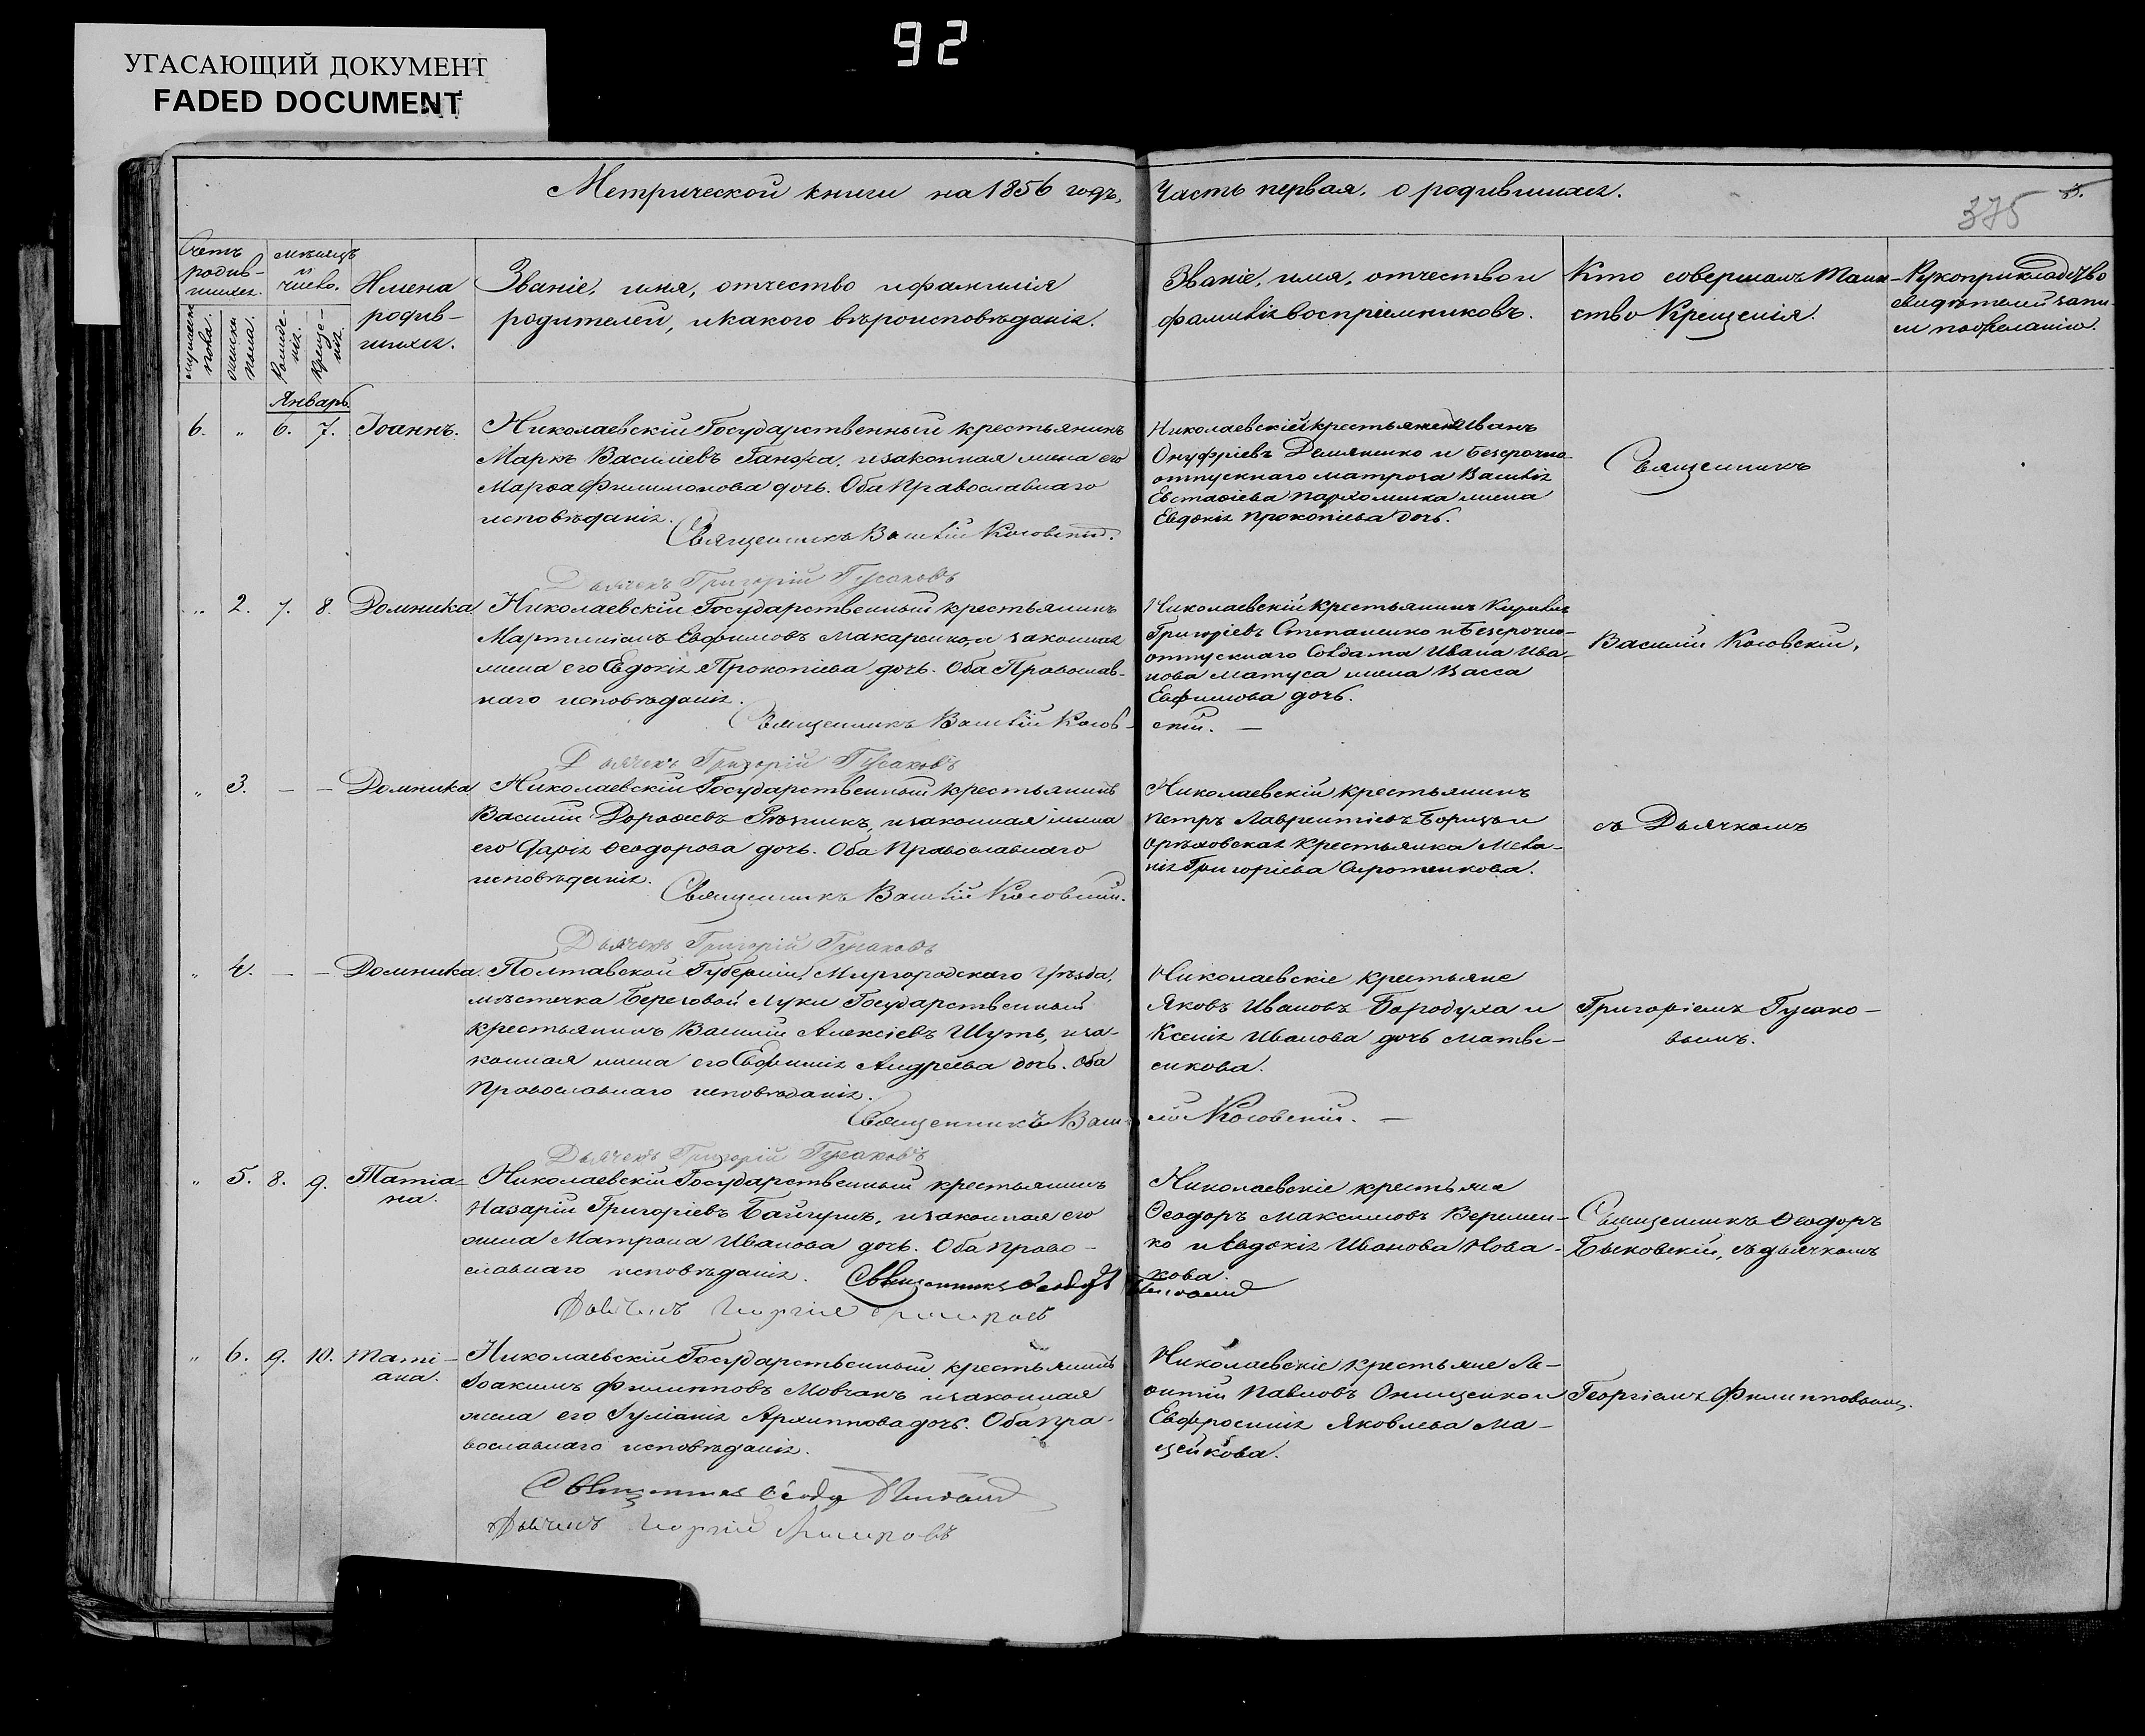 92
УГАСАЮЩИЙ ДОКУМЕНТ
FADED DOCUMENT
Метрической книги на 1856 годъ, Часть первая, о родившихся.
375
Счетъ родив-шихся.
мужеска пола.
женска пола.
мѣсяцъ и число.
Рожде-нія.
Креще-нія.
Имена родив-шихся.
Званіе, имя, отчество и фамилія
родителей, и какого вѣроисповѣданія.
Званіе, имя, отчество и
фамилія воспріемниковъ.
Кто совершалъ Таин-
ство Крещенія.
Рукоприкладство
свидѣтелей запи-
си по желанію.
Январь
6. „ 6. 7. Іоаннъ.
Николаевскій Государственный крестьянинъ
Маркъ Василіевъ Ганжа, и законная жена его
Марѳа Филимонова дочь. Оба Православнаго
исповѣданія.
Священникъ Василій Косовскій.
Дьячекъ Григорій Гусаковъ
Николаевскій крестьянинъ Иванъ
Онуфріевъ Демяненко и безсрочно-
отпускнаго матроза Василія
Евстафіева Пархоменка жена
Евдокія Прокопіева дочь.
Священникъ
„ 2. 7. 8. Домника.
Николаевскій Государственный крестьянинъ
Мартиніанъ Евфимовъ Макаренко, и законная
жена его Евдокія Прокопіева дочь. Оба Православ-
наго исповѣданія.
Священникъ Василій Косов-
скій. —
Дьячекъ Григорій Гусаковъ
Николаевскій крестьянинъ Кириллъ
Григоріевъ Степаненко и безсрочно-
отпускнаго Солдата Ивана Ива-
нова Матуса жена Васса
Евфимова дочь.
Василій Косовскій,
„ 3. — — Домника.
Николаевскій Государственный крестьянинъ
Василій Дорофеевъ Рѣзникъ, и законная жена
его Дарія Ѳеодорова дочь. Оба Православнаго
исповѣданія.
Священникъ Василій Косовскій.
Дьячекъ Григорій Гусаковъ
Николаевскій крестьянинъ
Петръ Лаврентіевъ и
Орѣховская крестьянка Мела-
нія Григоріева Сиротенкова.
съ Дьячкомъ
„ 4. — — Домника.
Полтавской Губерніи, Миргородскаго Уѣзда,
мѣстечка Береговой Луки Государственный
крестьянинъ Василій Алексіевъ Шуть, и за-
конная жена его Евфимія Андреева дочь. Оба
Православнаго исповѣданія.
Священникъ Васи-
лій Косовскій. —
Дьячекъ Григорій Гусаковъ
Николаевскіе крестьяне
Яковъ Ивановъ Бородуха и
Ксенія Иванова дочь Матве-
енкова.
Григоріемъ Гусако-
вымъ.
„ 5. 8. 9. Татіа-
на.
Николаевскій Государственный крестьянинъ
Назарій Григоріевъ, и законная его
жена Матрона Иванова дочь. Оба Право-
славнаго исповѣданія. Священникъ Ѳеодоръ
Дьячекъ Георгій Филиповъ
Николаевскіе крестьяне
Ѳеодоръ Максимовъ Веремен-
ко и Евдокія Иванова Нова-
кова.
Священникъ Ѳеодоръ
Быковскій, съ дьячкомъ
„ 6. 9. 10. Тати-
ана.
Николаевскій Государственный крестьянинъ
Іоакимъ Филипповъ Мовчанъ и законная
жена его Іуліанія Архиппова дочь. Оба Пра-
вославнаго исповѣданія.
Священникъ Ѳеодоръ
Дьячекъ Георгій Филиповъ
Николаевскіе крестьяне Ле-
онтій Павловъ Онищенко и
Евфросинія Яковлева Ма-
ценкова.
Георгіемъ Филипповымъ.